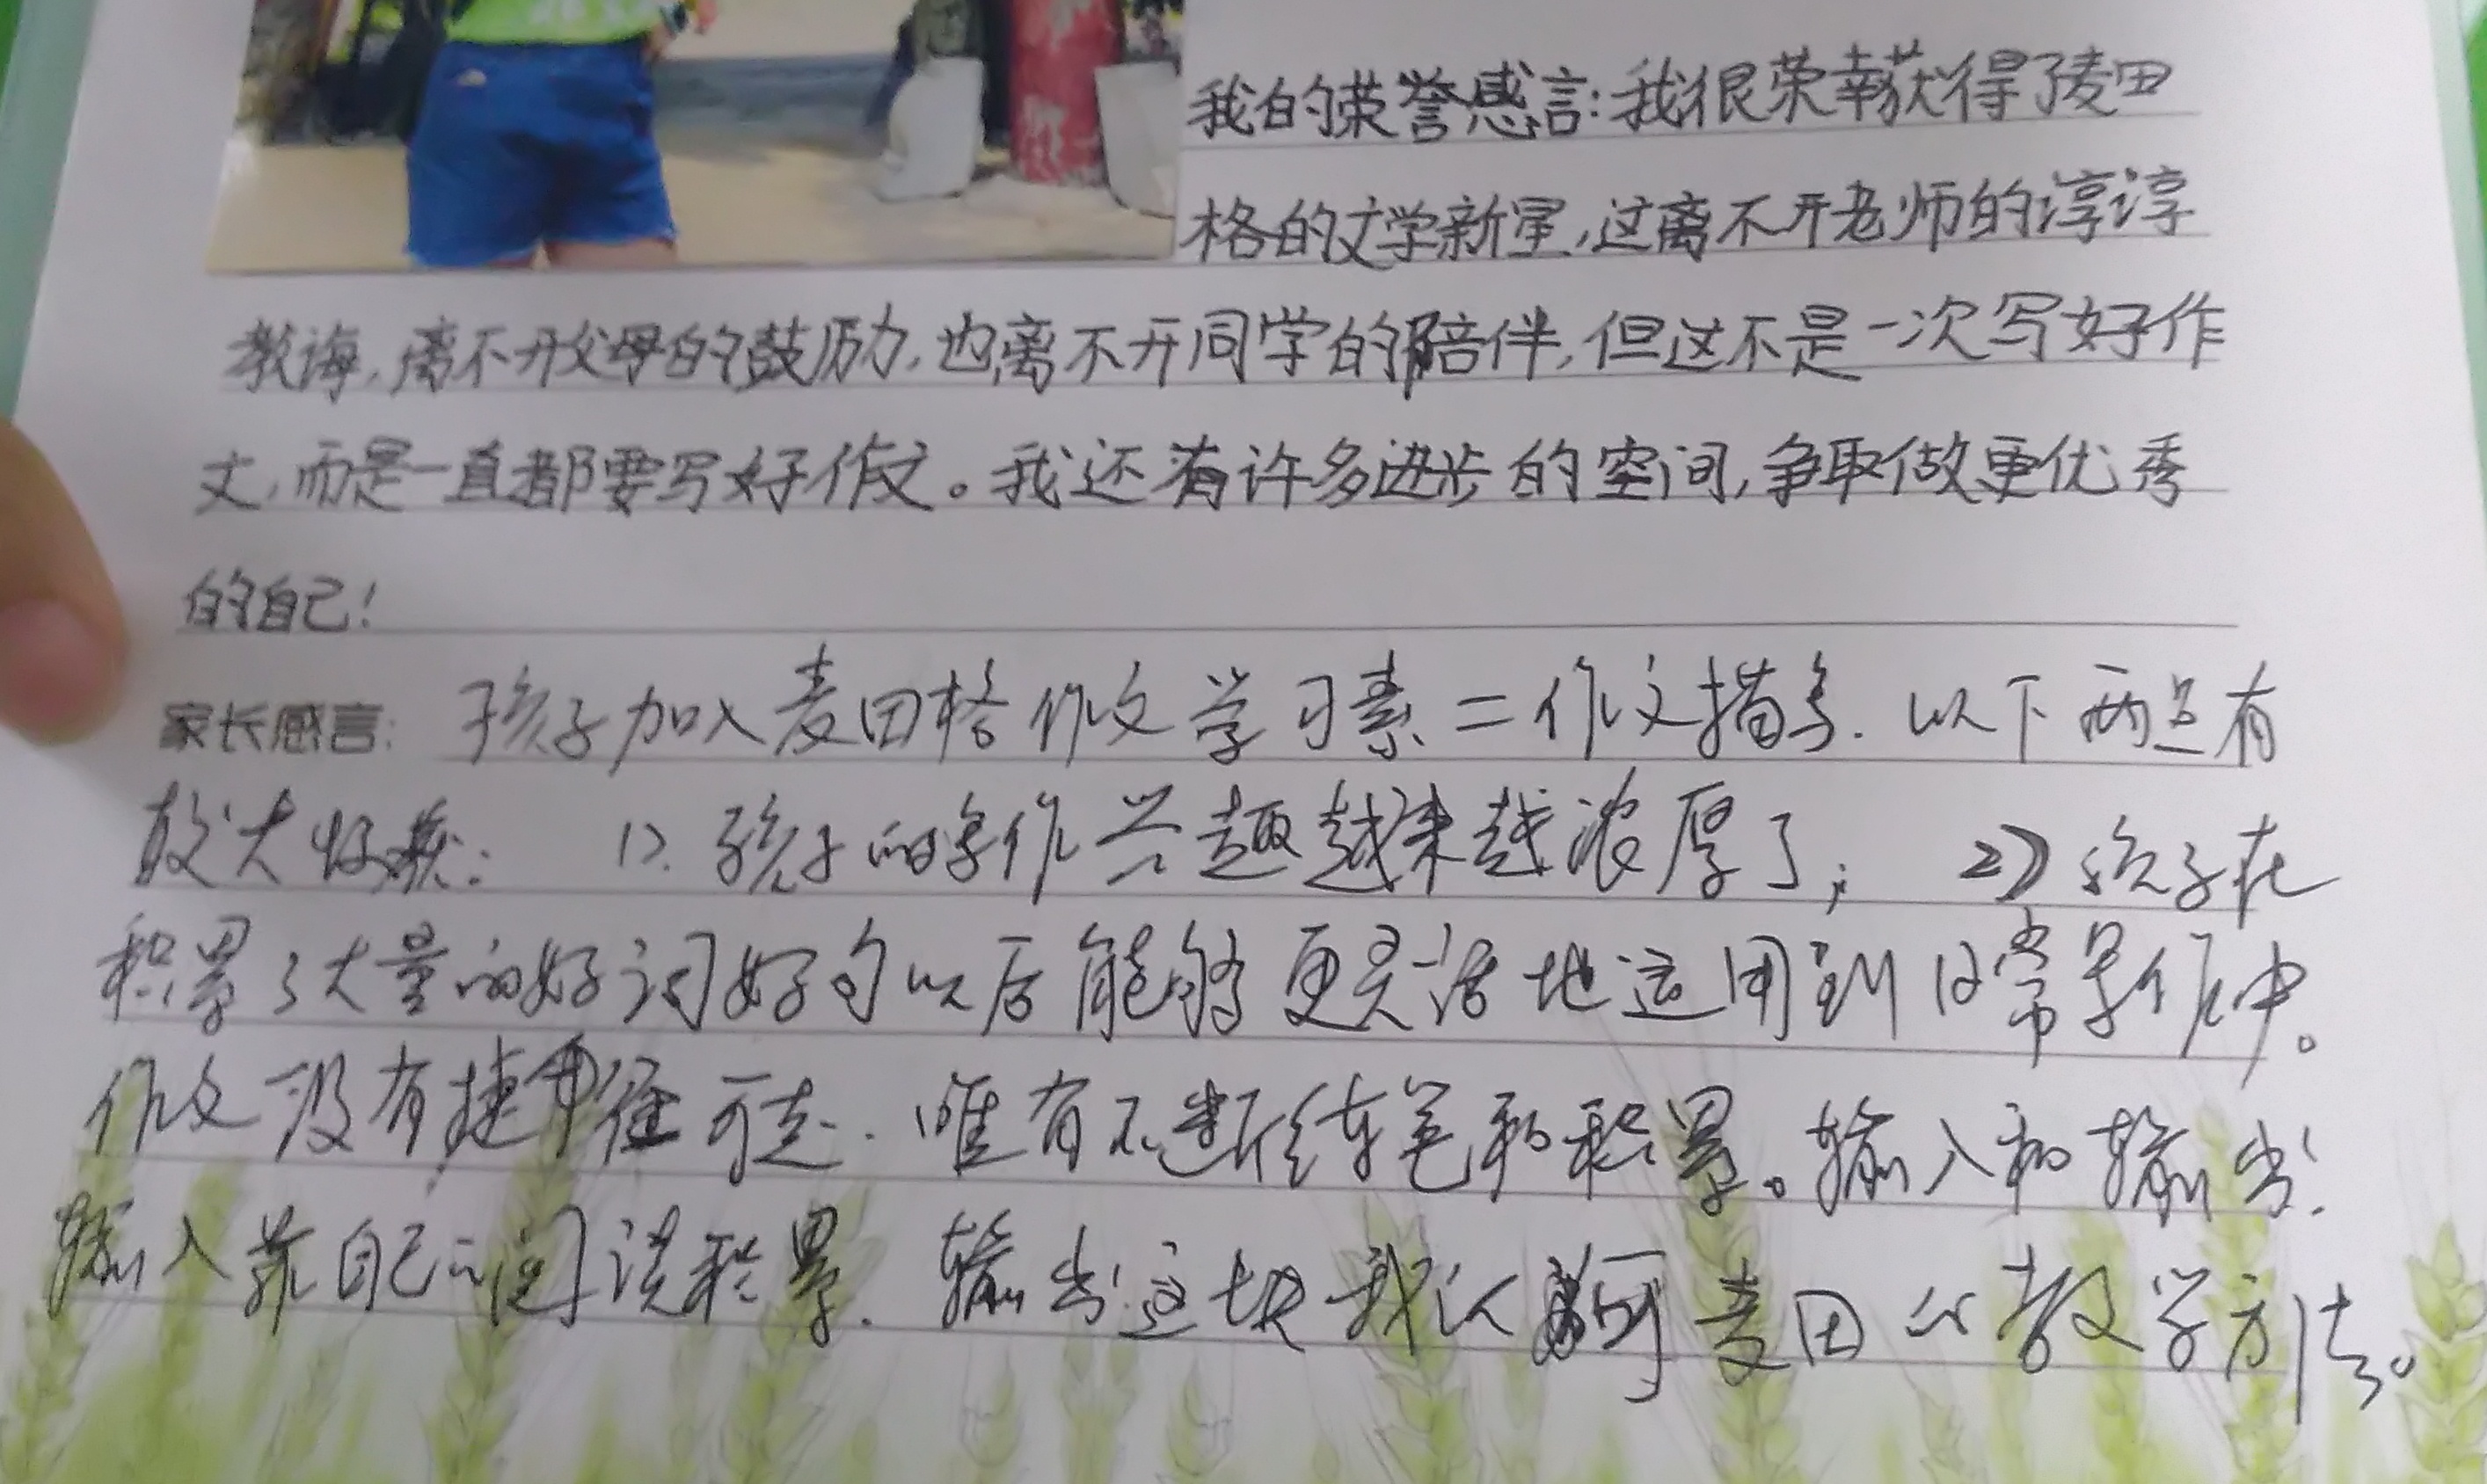 我的荣誉感言:我很荣幸获得了麦田
格的文学新星,这离不开老师的淳淳
教诲,离不开父母的鼓励,也离不开同学的陪伴,但这不是一次写好作
文,而是一直都要写好作文。我还有许多进步的空间,争取做更优秀
的自己!
家长感言: 孩子加入麦田格作文学习素二作文描多.以下两点有
较大收获: 1>.孩子的写作兴趣越来越浓厚了; 2>》孩子在
积累了大量的好词好句以后能够更灵活地运用到日常写作中。
作文没有捷径可走.唯有不断练笔和积累。输入和输出.
输入靠自己的阅读积累.输出这块我认可麦田的教学方法。